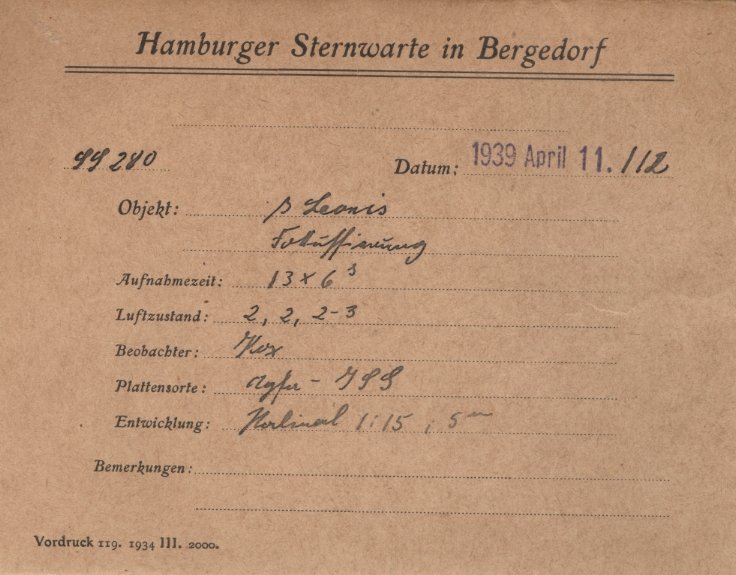 Hamburger Sternwarte in Bergedorf
SS 280 Datum: 1939 April 11./12
Objekt: β Leonis
Fokussierung
Aufnahmezeit: 13 x 6 s
Luftzustand: 2, 2, 2-3
Beobachter:
Plattensorte: Agfa - ISS
Entwicklung: 1:15, 5 m
Bemerkungen:
Vordruck 119. 1934 III. 2000.